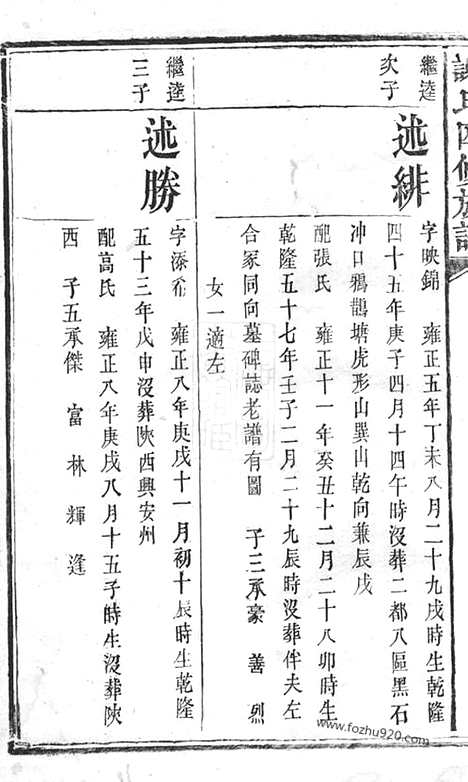 氏四修族譜
繼逵
次子
述緋
字映錦 雍正五年丁未八月二十九戌時生乾隆
四十五年庚子四月十四午時沒葬二都八區黑石
冲口鴉鵲塘虎形山巽山乾向兼辰戌
配張氏 雍正十一年癸丑十二月二十八卯時生
乾隆五十七年壬子二月二十九辰時沒葬伴夫左
合冢同向墓碑誌老譜有圖 子三承豪 善 烈
女一適左
繼逵
三子
述勝
字添希 雍正八年庚戌十一月初十辰時生乾隆
五十三年戊申沒葬陝西興安州
配葛氏 雍正八年庚戌八月十五子時生沒葬陝
西 子五承傑 富 林 輝 逢
www.fozhu920.com